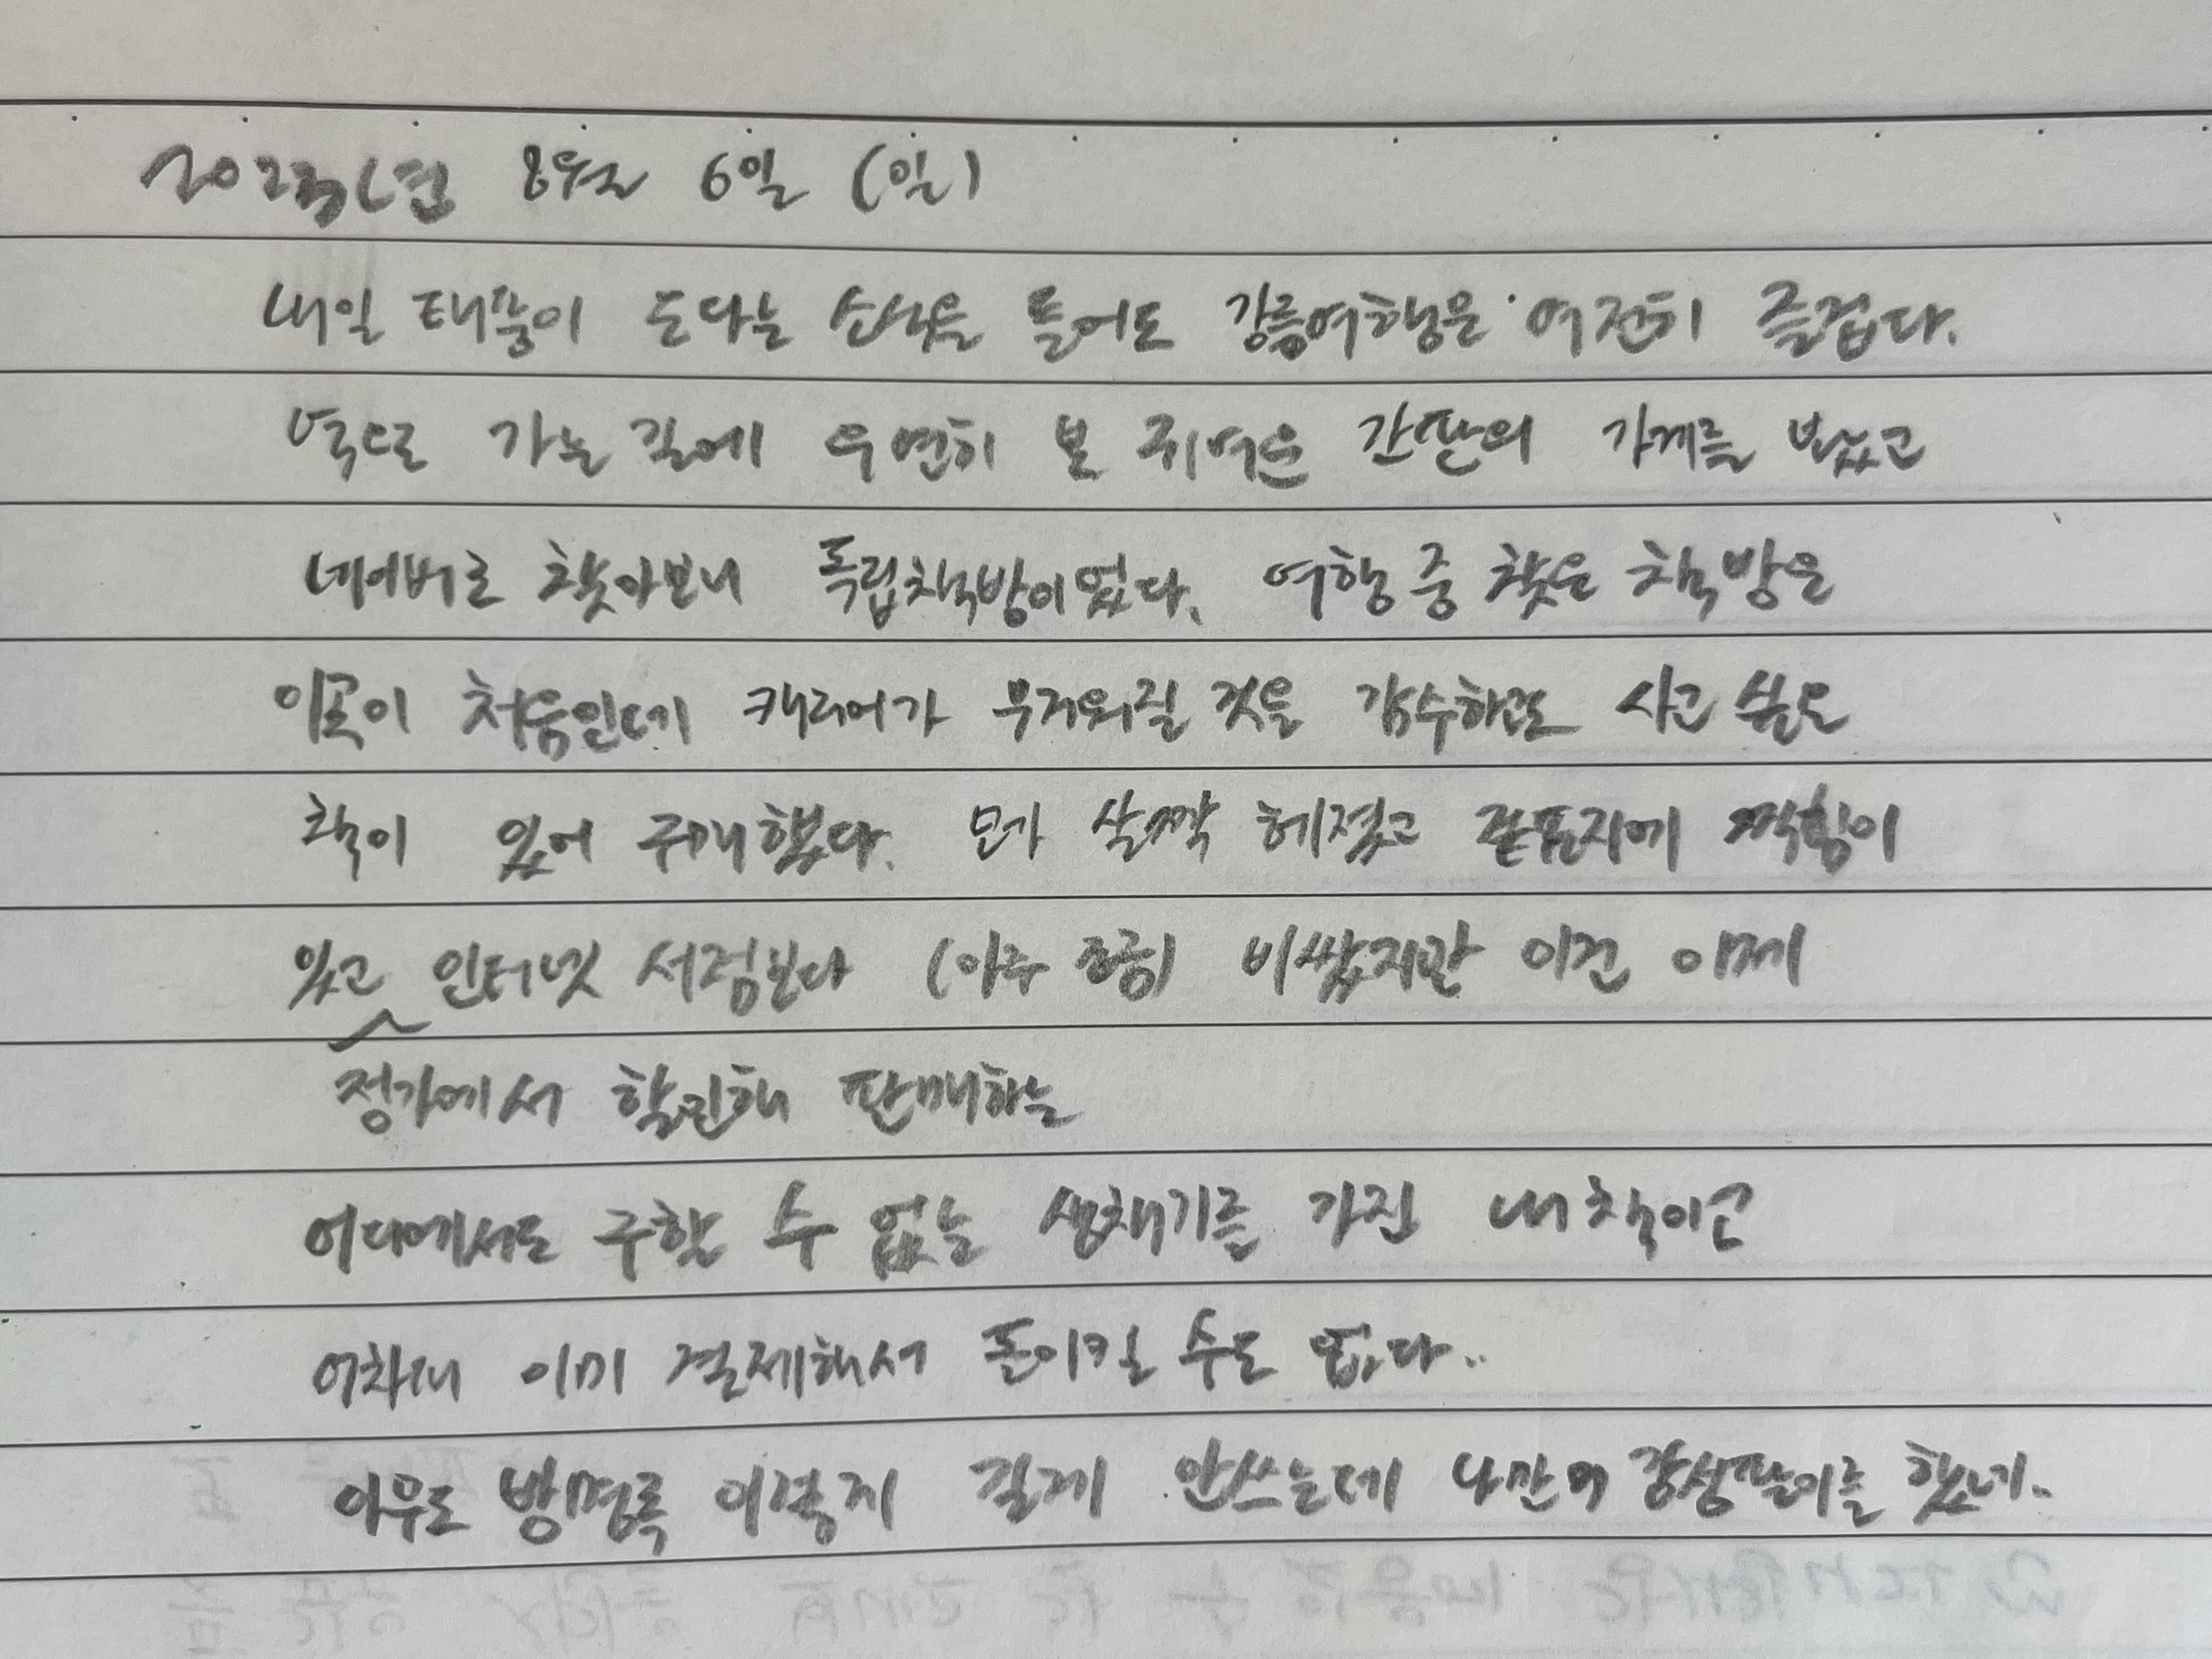 2023년 8월 6일 (일)
내일 태풍이 온다는 소식을 들어도 강릉여행은 여전히 즐겁다.
역으로 가는 길에 우연히 본 귀여운 간판의 가게를 보았고
네이버로 찾아보니 독립책방이었다. 여행 중 찾은 책방은
이곳이 처음인데 캐리어가 무거워질 것을 감수하고도 사고 싶은
책이 있어 구매했다. 모가 살짝 헤졌고 겉표지에 찍힘이
있고 인터넷 서점보다 (아주 조금) 비쌌지만 이건 이제
정가에서 할인해 판매하는
어디에서도 구할 수 없는 생채기를 가진 내 책이고
어차피 이미 결제해서 돌이킬 수도 없다..
아무도 방명록 이렇게 길게 안쓰는데 나만의 감성팔이를 했네..